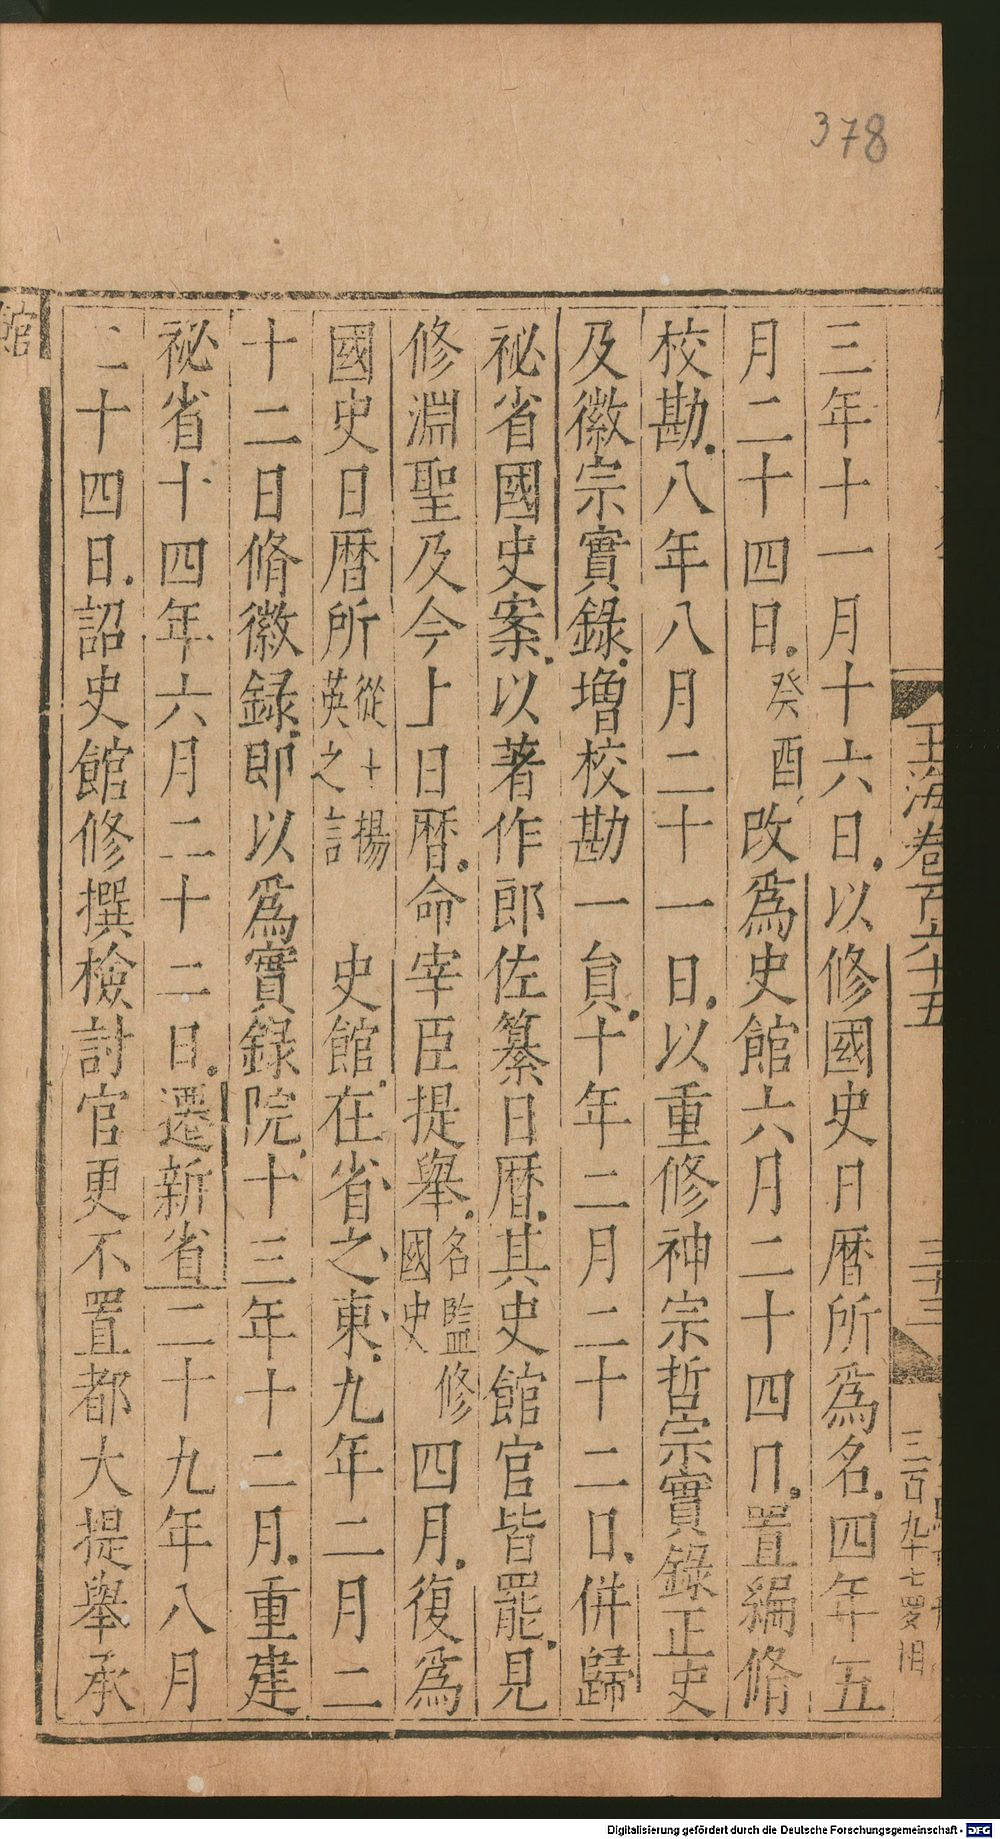 378
玉海卷百六十五
三十三
三百九十七
三年十一月十六日以修國史日曆所爲名四年五
月二十四日癸酉改爲史館六月二十四日置編脩
校勘八年八月二十一日以重修神宗哲宗實錄正史
及徽宗實錄增校勘一員十年二月二十二日併歸
祕省國史案以著作郎佐纂日曆其史館官皆罷見
修淵聖及今上日曆命宰臣提舉名監修國史四月復爲
國史日曆所從十揚英之訁史館在省之東九年二月二
十二日脩徽録即以爲實錄院十三年十二月重建
祕省十四年六月二十二日遷新省二十九年八月
二十四日詔史館修撰檢討官更不置都大提舉承
館
Digitalisierung gefördert durch die Deutsche Forschungsgemeinschaft - DFG